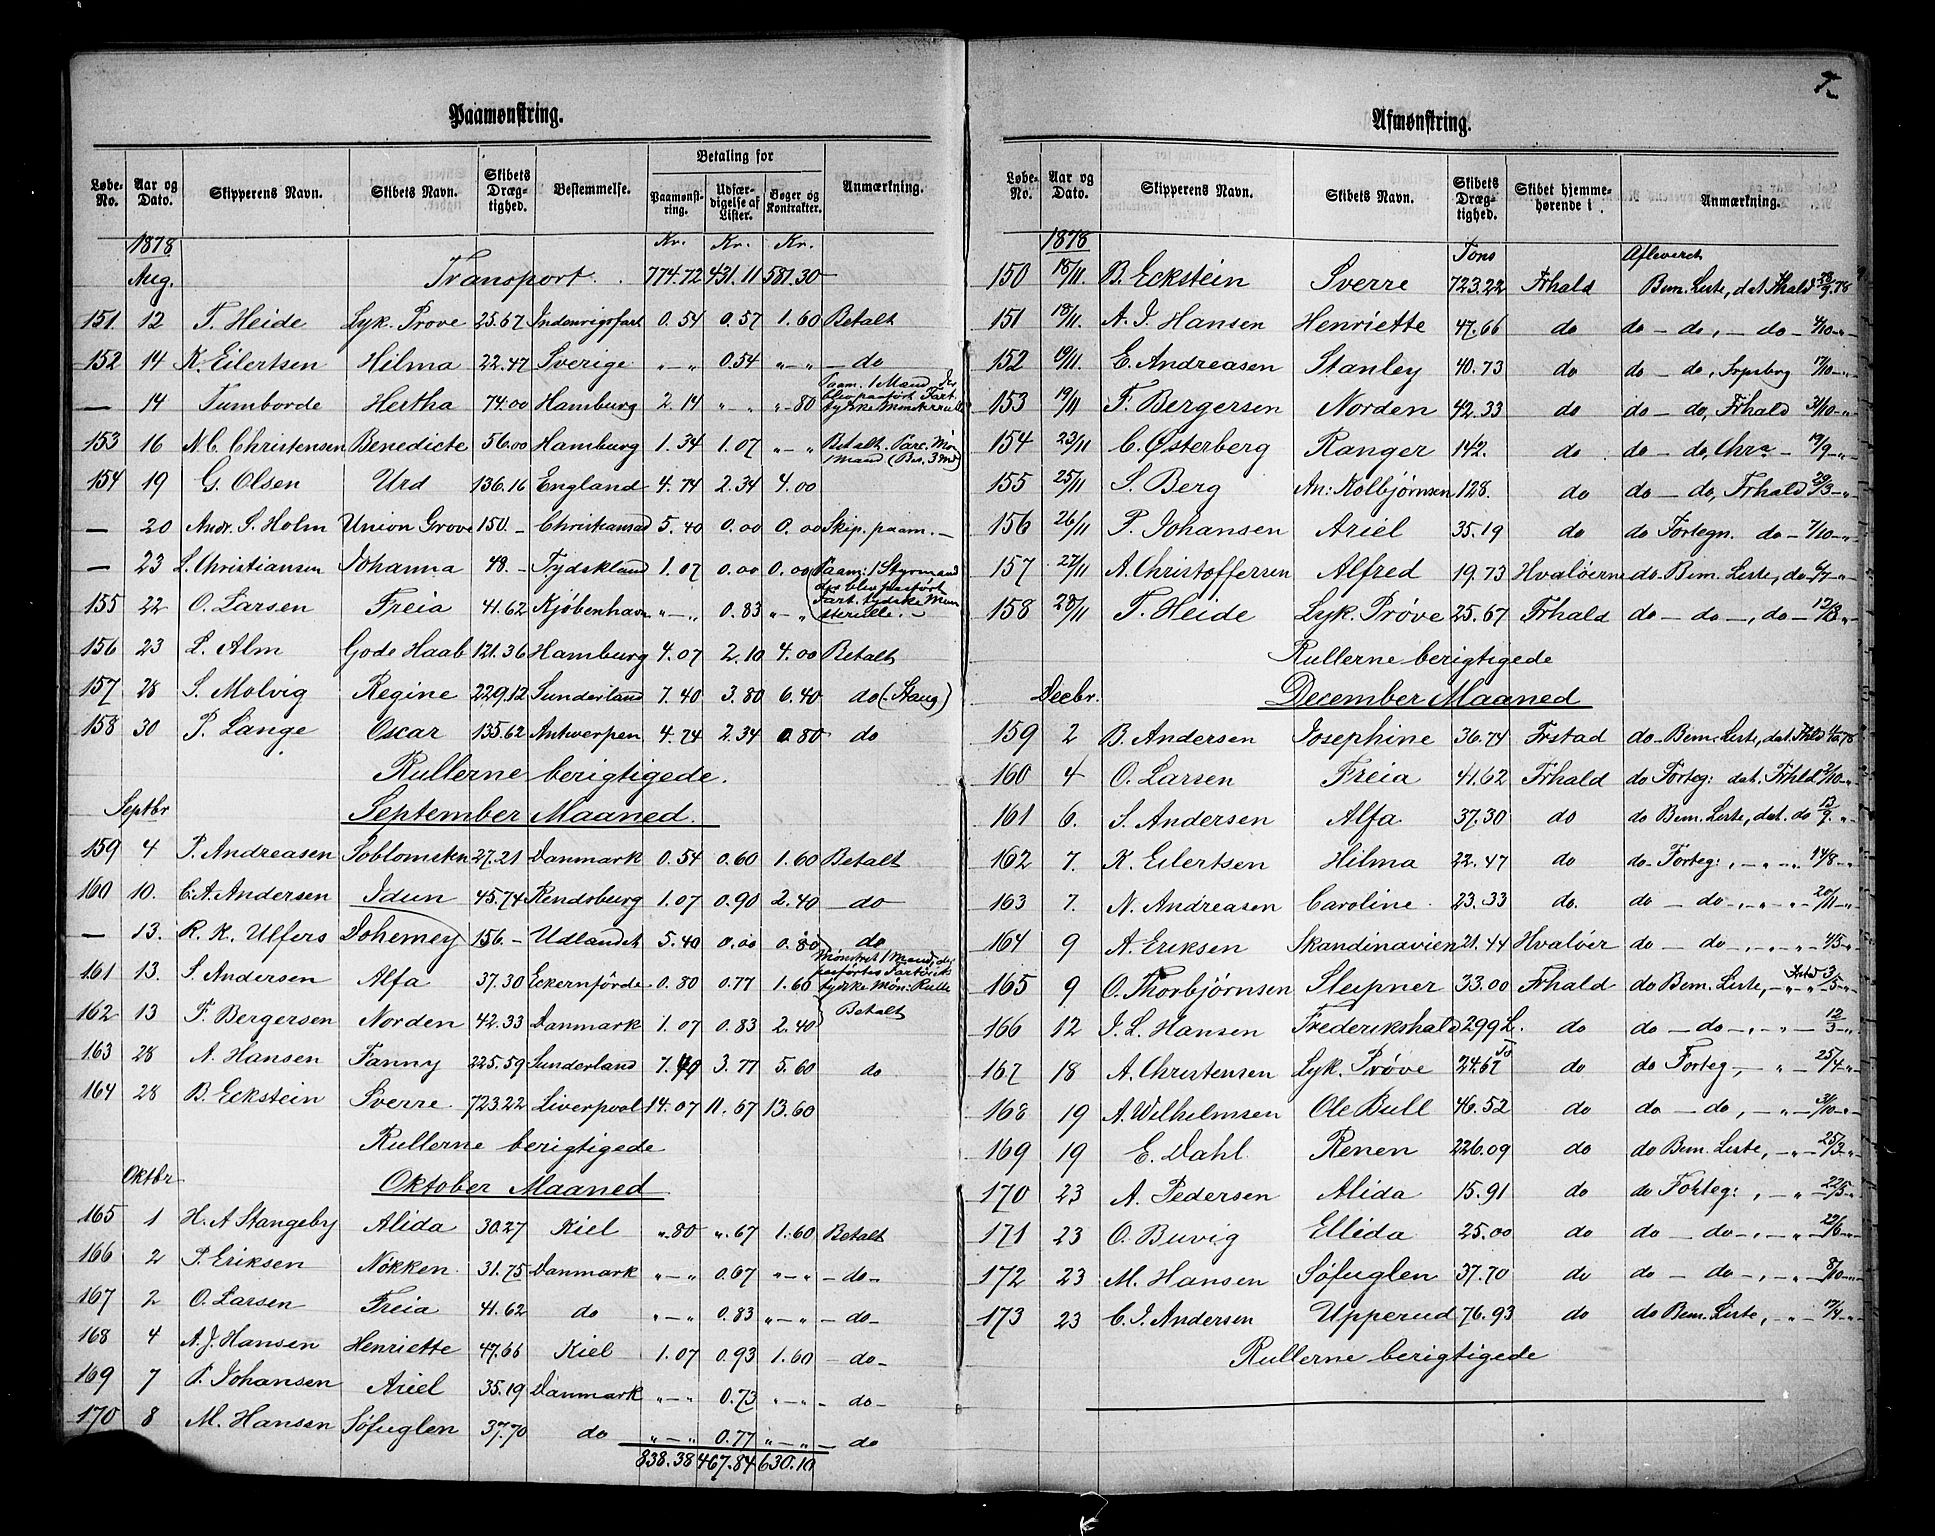 Paamønstring.
Løbe-No. | Aar og Dato. | Skipperens Navn. | Skibets Navn. | Skibets Dræg-tighed. | Bestemmelse. | Betaling for | Paamønst-ring. | Udfær-digelse af Lister. | Bøger og Kontrakter. | Anmærkning.
1878 Kr. Kr. Kr.
Aug. Transport . 774.72 431.11 587.30 —
151. 12 T. Heide Lyk. Prøve 25.67 Indenrigsfart 0.54 0.57 1.60 Betalt
152 14 K. Eilertsen Hilma 22.47 Sverige „—„ 0.54 „—„ — do
— 14 Tumborde Hertha 74.00 Hamburg 2.14 „—„ „—80 Paam. 1 Mand
153 16 N. C. Christensen Benedicte 56.00 Hamburg 1.34 1.07 „—„ Betalt. 1 Mand
154 19 G. Olsen Urd 136.16 England 4.74 2.34 4.00
— 20 Andr. S. Holm Union Grove 150.— Christiansad 5.40 0.00 0.00 Skip. paam. —
— 23 L. Christiansen Johanna 48.— Tydskland 1.07 0.00 0.00 Paam: 1 Styrmand
155 22 O. Larsen Freia 41.62 Kjöbenhavn „—„ 0.83 „—„
156 23 L. Alm Gode Haab 121.36 Hamburg 4.07 2.10 4.00 Betalt
157 28 S. Molvig Regine 229.12 Sunderland 7.40 3.80 6.40 do (Stang)
158 30 P. Lange Oscar 135.62 Antwerpen 4.74 2.34 0.80 do
Rullerne berigtigede.
Septbr September Maaned.
159 4 P. Andreasen Soblomsten 27.21 Danmark 0.54 0.60 1.60 Betalt
160 10. C. A. Andersen Idun 45.74 Rendsburg 1.07 0.90 2.40 — do —
— 13. R. K. Ulfers Dohemey 156.— Udlandet 5.40 0.00 0.80 do
161 13. S. Andersen Alfa 37.30 Eckernförde 0.80 0.77 1.60 Mønstret 1 Mand,
162 13 F. Bergersen Norden 42.33 Danmark 1.07 0.83 2.40 Betalt
163 28 A. Hansen Fanny 225.59 Sunderland 7.40 3.77 5.60 do
164 28 B. Eckstein Sverre 723.22 Liverpool 14.07 11.67 13.60
Rullerne berigtigede
Oktbr Oktober Maaned
165 1 H. A Stangeby Alida 30.27 Kiel „.80 „.67 1.60 Betalt
166 2 P. Eriksen Nökken 31.75 Danmark „—„ 0.67 „—„ — do —
167 2 O. Larsen Freia 41.62 do „—„ 0.83 „—„ — do —
168 4 A. J. Hansen Henriette 47.66 Kiel 1.07 0.93 1.60 — do —
169 7 P. Johansen Ariel 35.19 Danmark „—„ 0.73 „—„ — do —
170 8 M. Hansen Søfuglen 37.70 do „—„ 0.77 „—„ — do
838.38 467.84 630.10
Afmønstring.
Løbe-No. | Aar og Dato. | Skipperens Navn. | Skibets Navn. | Skibets Dræg-tighed. | Skibet hjemme-hørende i | Anmærkning.
1878 Tons Afleveret
150 18/11 B. Eckstein Sverre 723.22 Frhald Bem. Liste, dat. Fhald 28/9 78
151 18/11. A. J. Hansen Henriette 47.66 do do — do, — do — 4/10 — „
152 19/11. E. Andreasen Stanley 40.73 do do — do, Srpsborg 17/10 — „
153 19/11 F. Bergersen Norden 42.33 do do — do, Frhald 31/10 — „
154 23/11 C. Østerberg Ranger 142. do do — do, Chra — 19/9 — „
155 25/11 S. Berg An: Kolbjørnsen 128. do do — do, Frhald 20/3 — „
156 26/11 P. Johansen Ariel 35.19 do do Fortegn. do — 7/10 — „
157 27/11 A. Christoffersen Alfred 19.73 Hvaløerne do Bem. Liste, do 6/7 — „
158 28/11 T. Heide Lyk. Prøve 25.67 Frhald do — do —, do — 12/8 „
Rullerne berigtigede
Decbr. December Maaned
159 2 B. Andersen Josephine 36.74 Frstad do Bem. Liste, dat. Fhld 4/10 78
160 4 O. Larsen Freia 41.62 Frhald do Forteg: dat. Frhld 2/10 — „
161 6. S. Andersen Alfa 37.30 do do Bem. Liste, dat. do 13/9 „
162 7. K. Eilertsen Hilma 22.47 do do Forteg:, „ „ 14/8 — „
163 7. N. Andreasen Caroline 23.33 do do — do —, „ — „ 20/11 — „
164 9 A. Eriksen Skandinavien 21.44 Hvaløer do — do —, „ — „ 4/5 — „
165 9 O. Thorbjørnsen Sleipner 33.00 Frhald do Bem. Liste, — „ 3/5 — „
166 12 J. L. Hansen Frederikshald 299 L. do do — do —, — „ — 12/3 — „
167 18 A. Christensen Lyk. Prøve 24.67 To do do Forteg, — „ — 25/4 — „
168 19 A. Wilhelmsen Ole Bull 46.52 do do — do, — „ — 31/10 — „
169 19 E. Dahl Renen 226.09 do do Bem. Liste, — „ — 25/3 — „
170 23 A. Pedersen Alida 15.91 do do Forteg:, — „ 22/5 — „
171 23 O. Buvig Ellida 25.00 do do — do —, — „ — 22/6 — „
172 23 M. Hansen Søfuglen 37.70 do do — do —, — „ — 8/10 — „
173 23 C. J. Andersen Upperud 76.93 do do Bem. Liste, — „ — 17/4 — „
Rullerne berigtigede